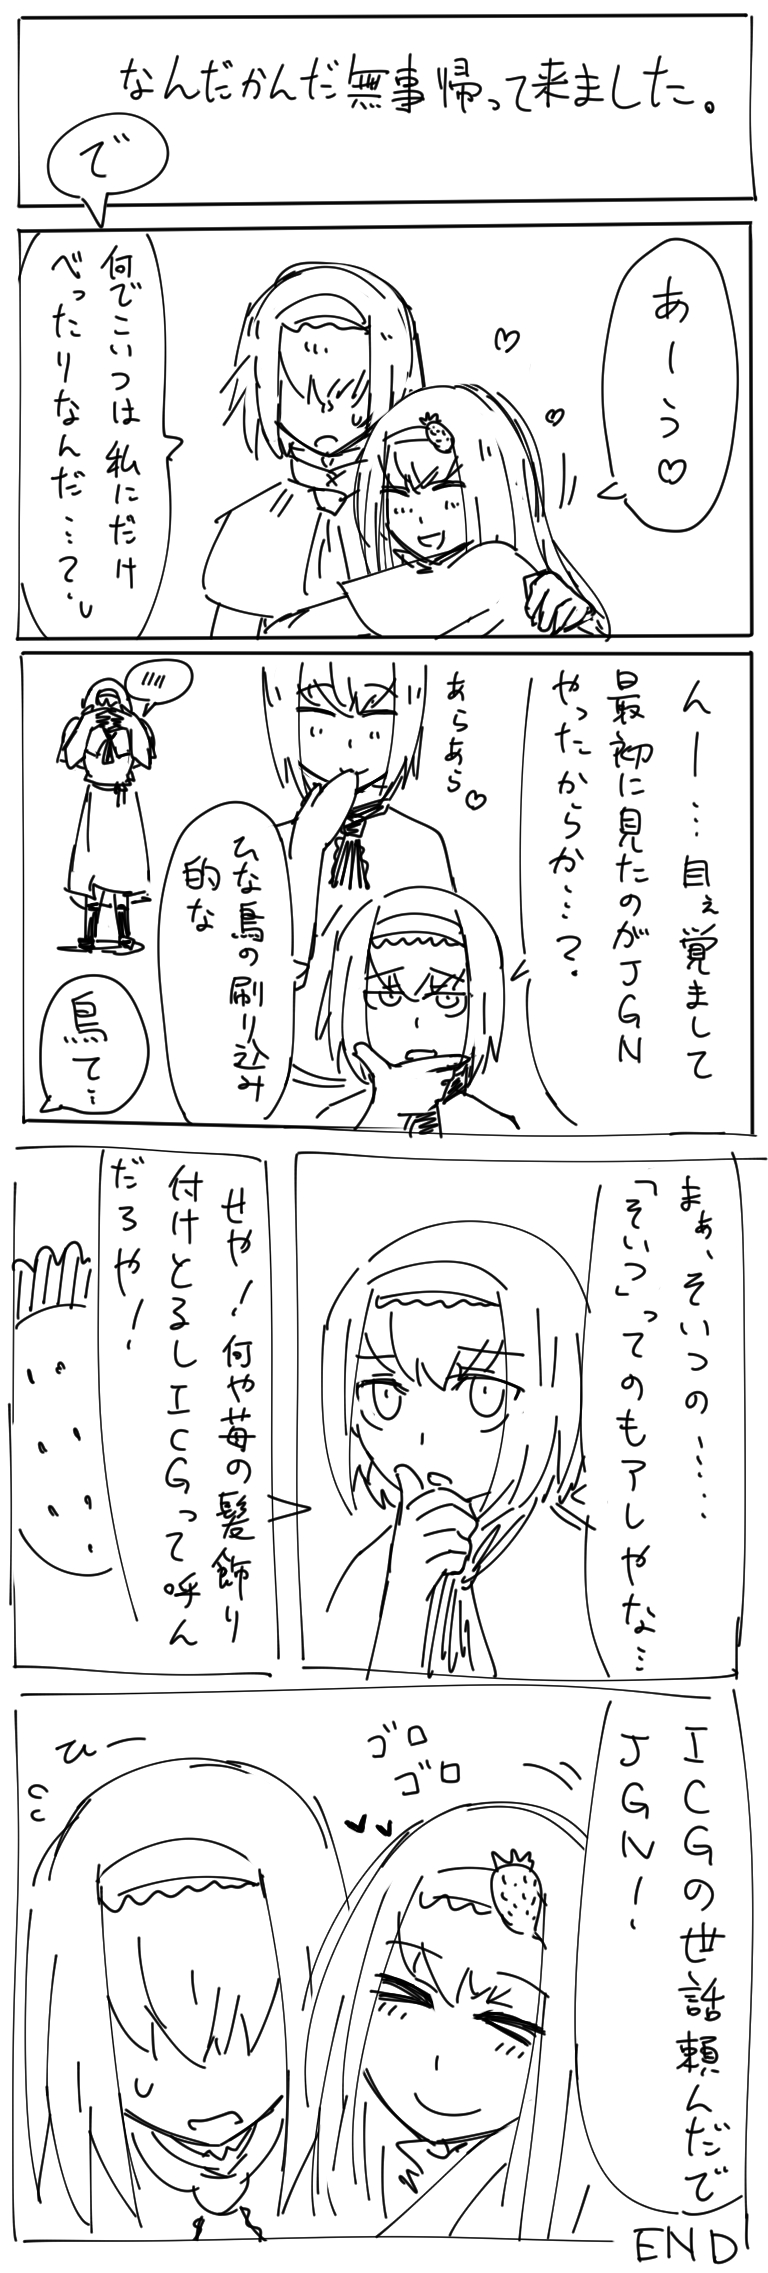 なんだかんだ無事帰って来ました。
で
あーう♡
何でこいつは私にだけ
べったりなんだ…?
んー…目ぇ覚まして
最初に見たのがJGN
やったからか…?
あらあら♡
ひな鳥の刷り込み
的な
鳥て…
まぁ、そいつの……
「そいつ」ってのもアレやな…
せや!何や苺の髪飾り
付けとるしICGって呼ん
だろや!
ICGの世話頼んだで
JGN!
ゴロ
ゴロ
ひー
END